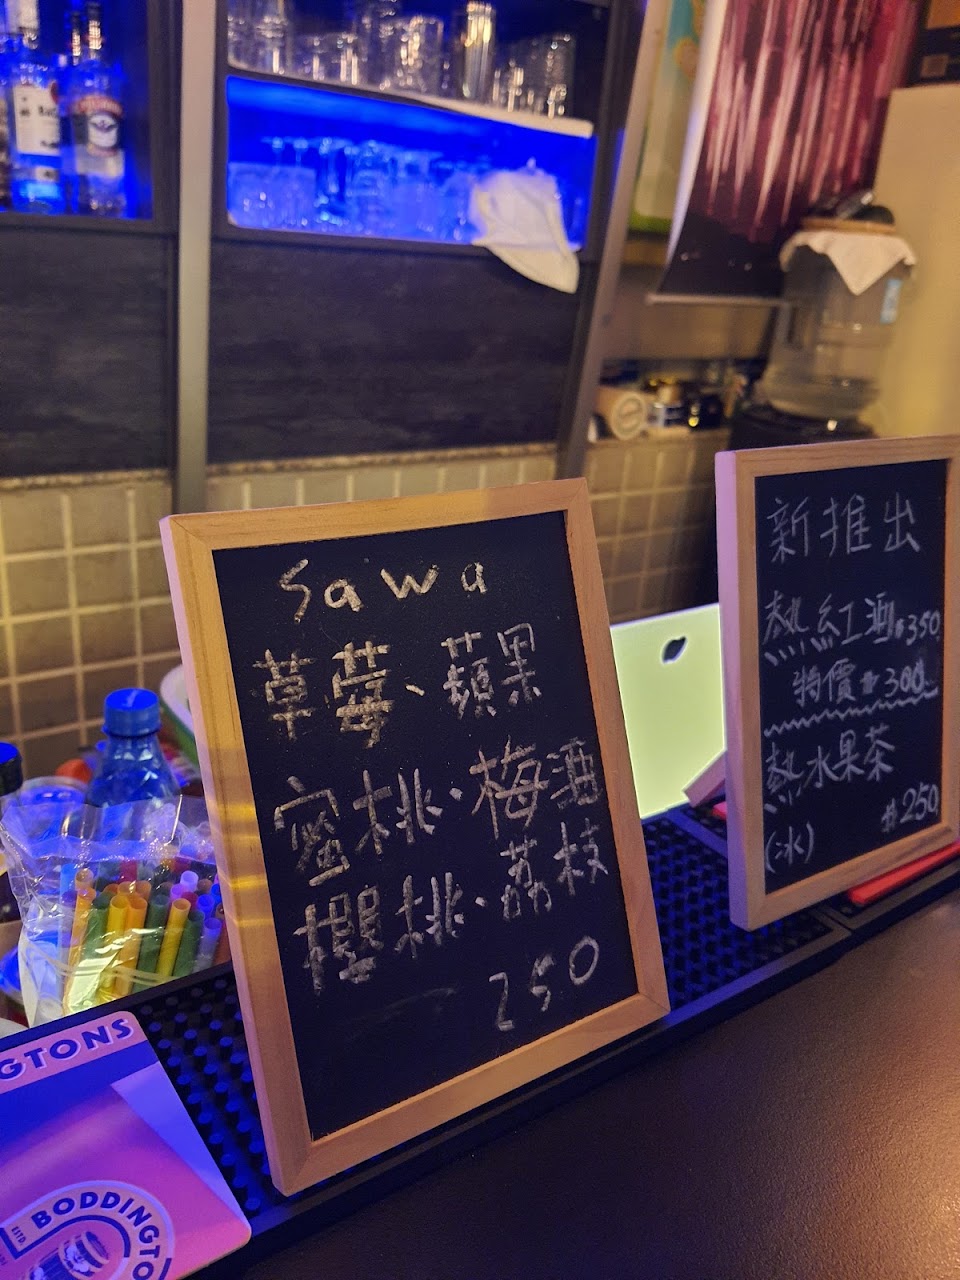 Sawa
草莓、蘋果
蜜桃、梅酒
櫻桃、荔枝
250
新推出
熱紅酒$350
特價$300
熱水果茶
(冰) $250
GTONS
BODDINGTO
ESTD.